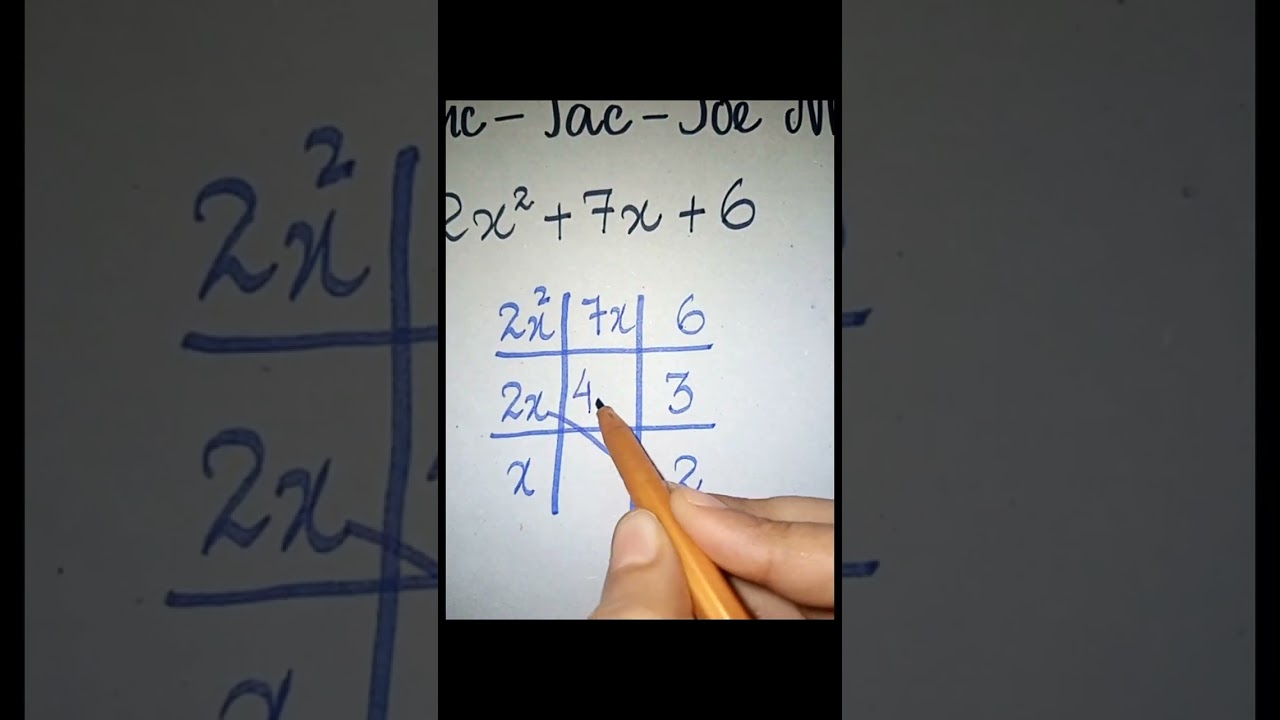 Tac - Joe
2x² + 7x + 6
2x² 7x 6
2x 4 3
x 2